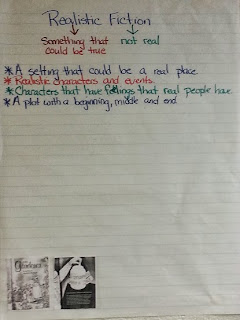 Realistic Fiction
Something that not real
could be true
* A setting that could be a real place.
* Realistic characters and events.
* Characters that have feelings that real people have.
* A plot with a beginning, middle and end.